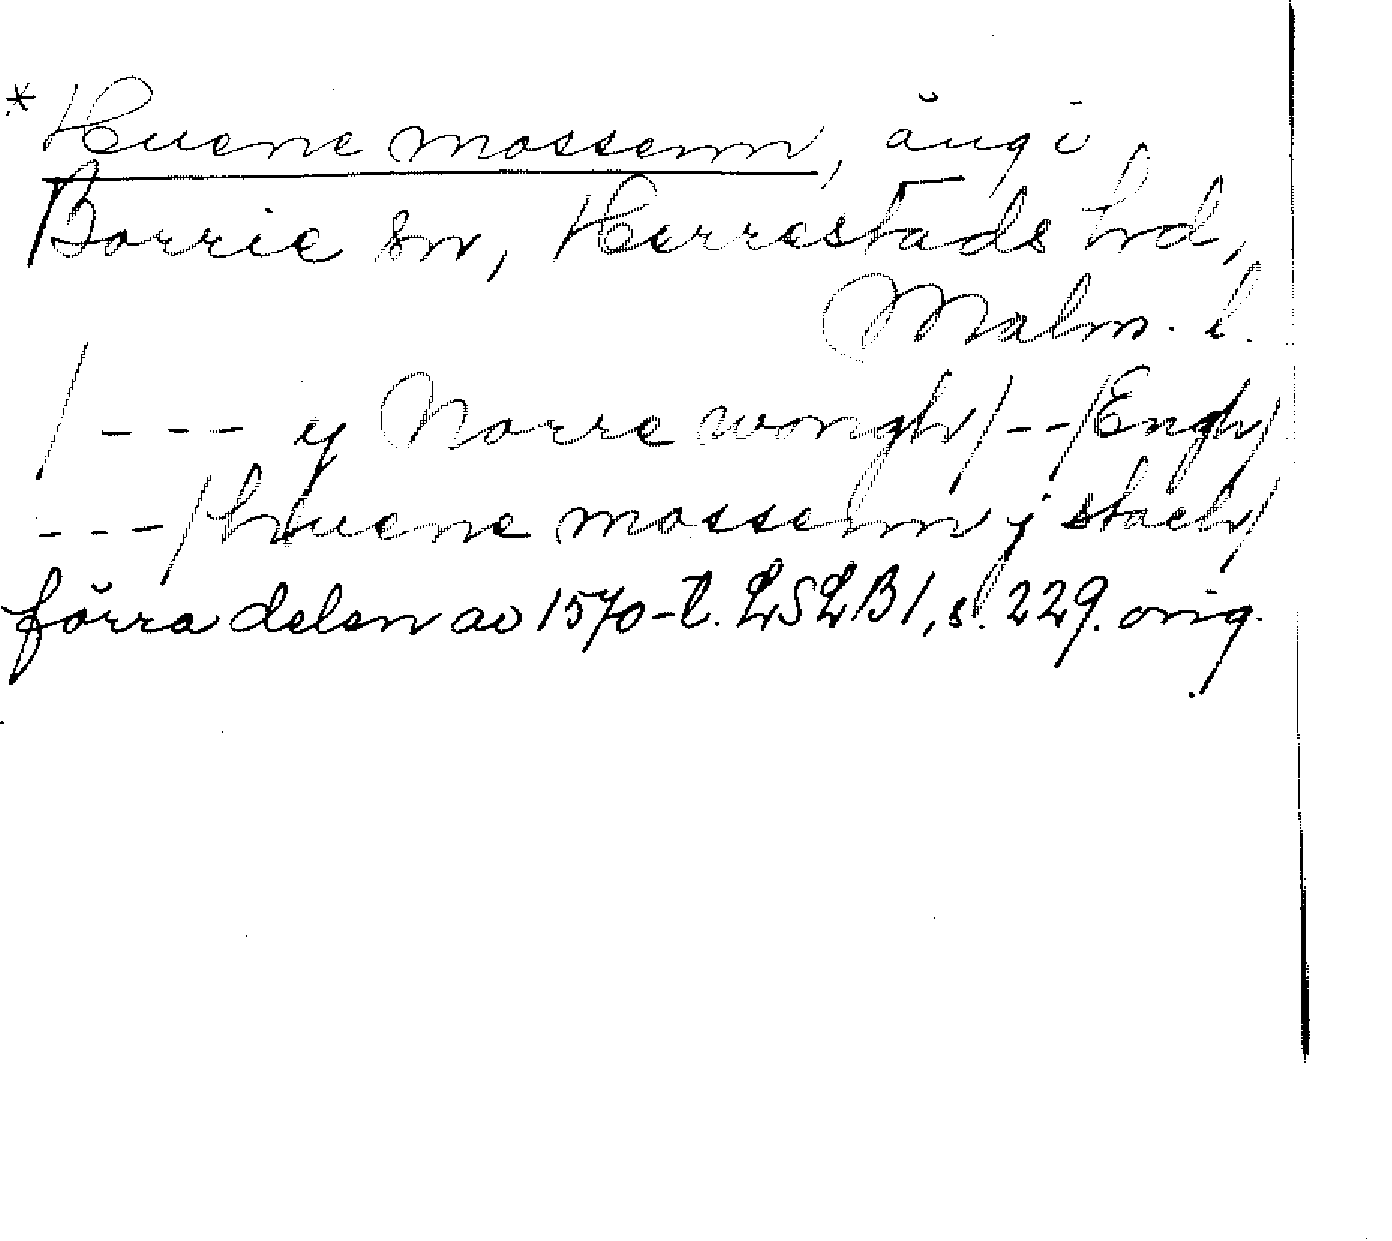 * Huene mossenn, äng i
Borrie sn, Herrestads hd,
Malm. l.
/ - - - y Norre wongh / - - / Engh /
- - - / huuene mossenn j stach /
förra delen av 1570-t. LSLB1, s. 229. orig.